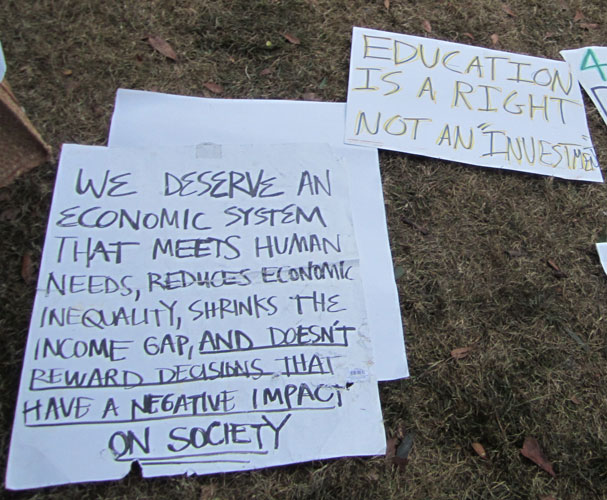 WE DESERVE AN
ECONOMIC SYSTEM
THAT MEETS HUMAN
NEEDS, REDUCES ECONOMIC
INEQUALITY, SHRINKS THE
INCOME GAP, AND DOESN'T
REWARD DECISIONS THAT
HAVE A NEGATIVE IMPACT
ON SOCIETY
EDUCATION
IS A RIGHT
NOT AN "INVESTMEN